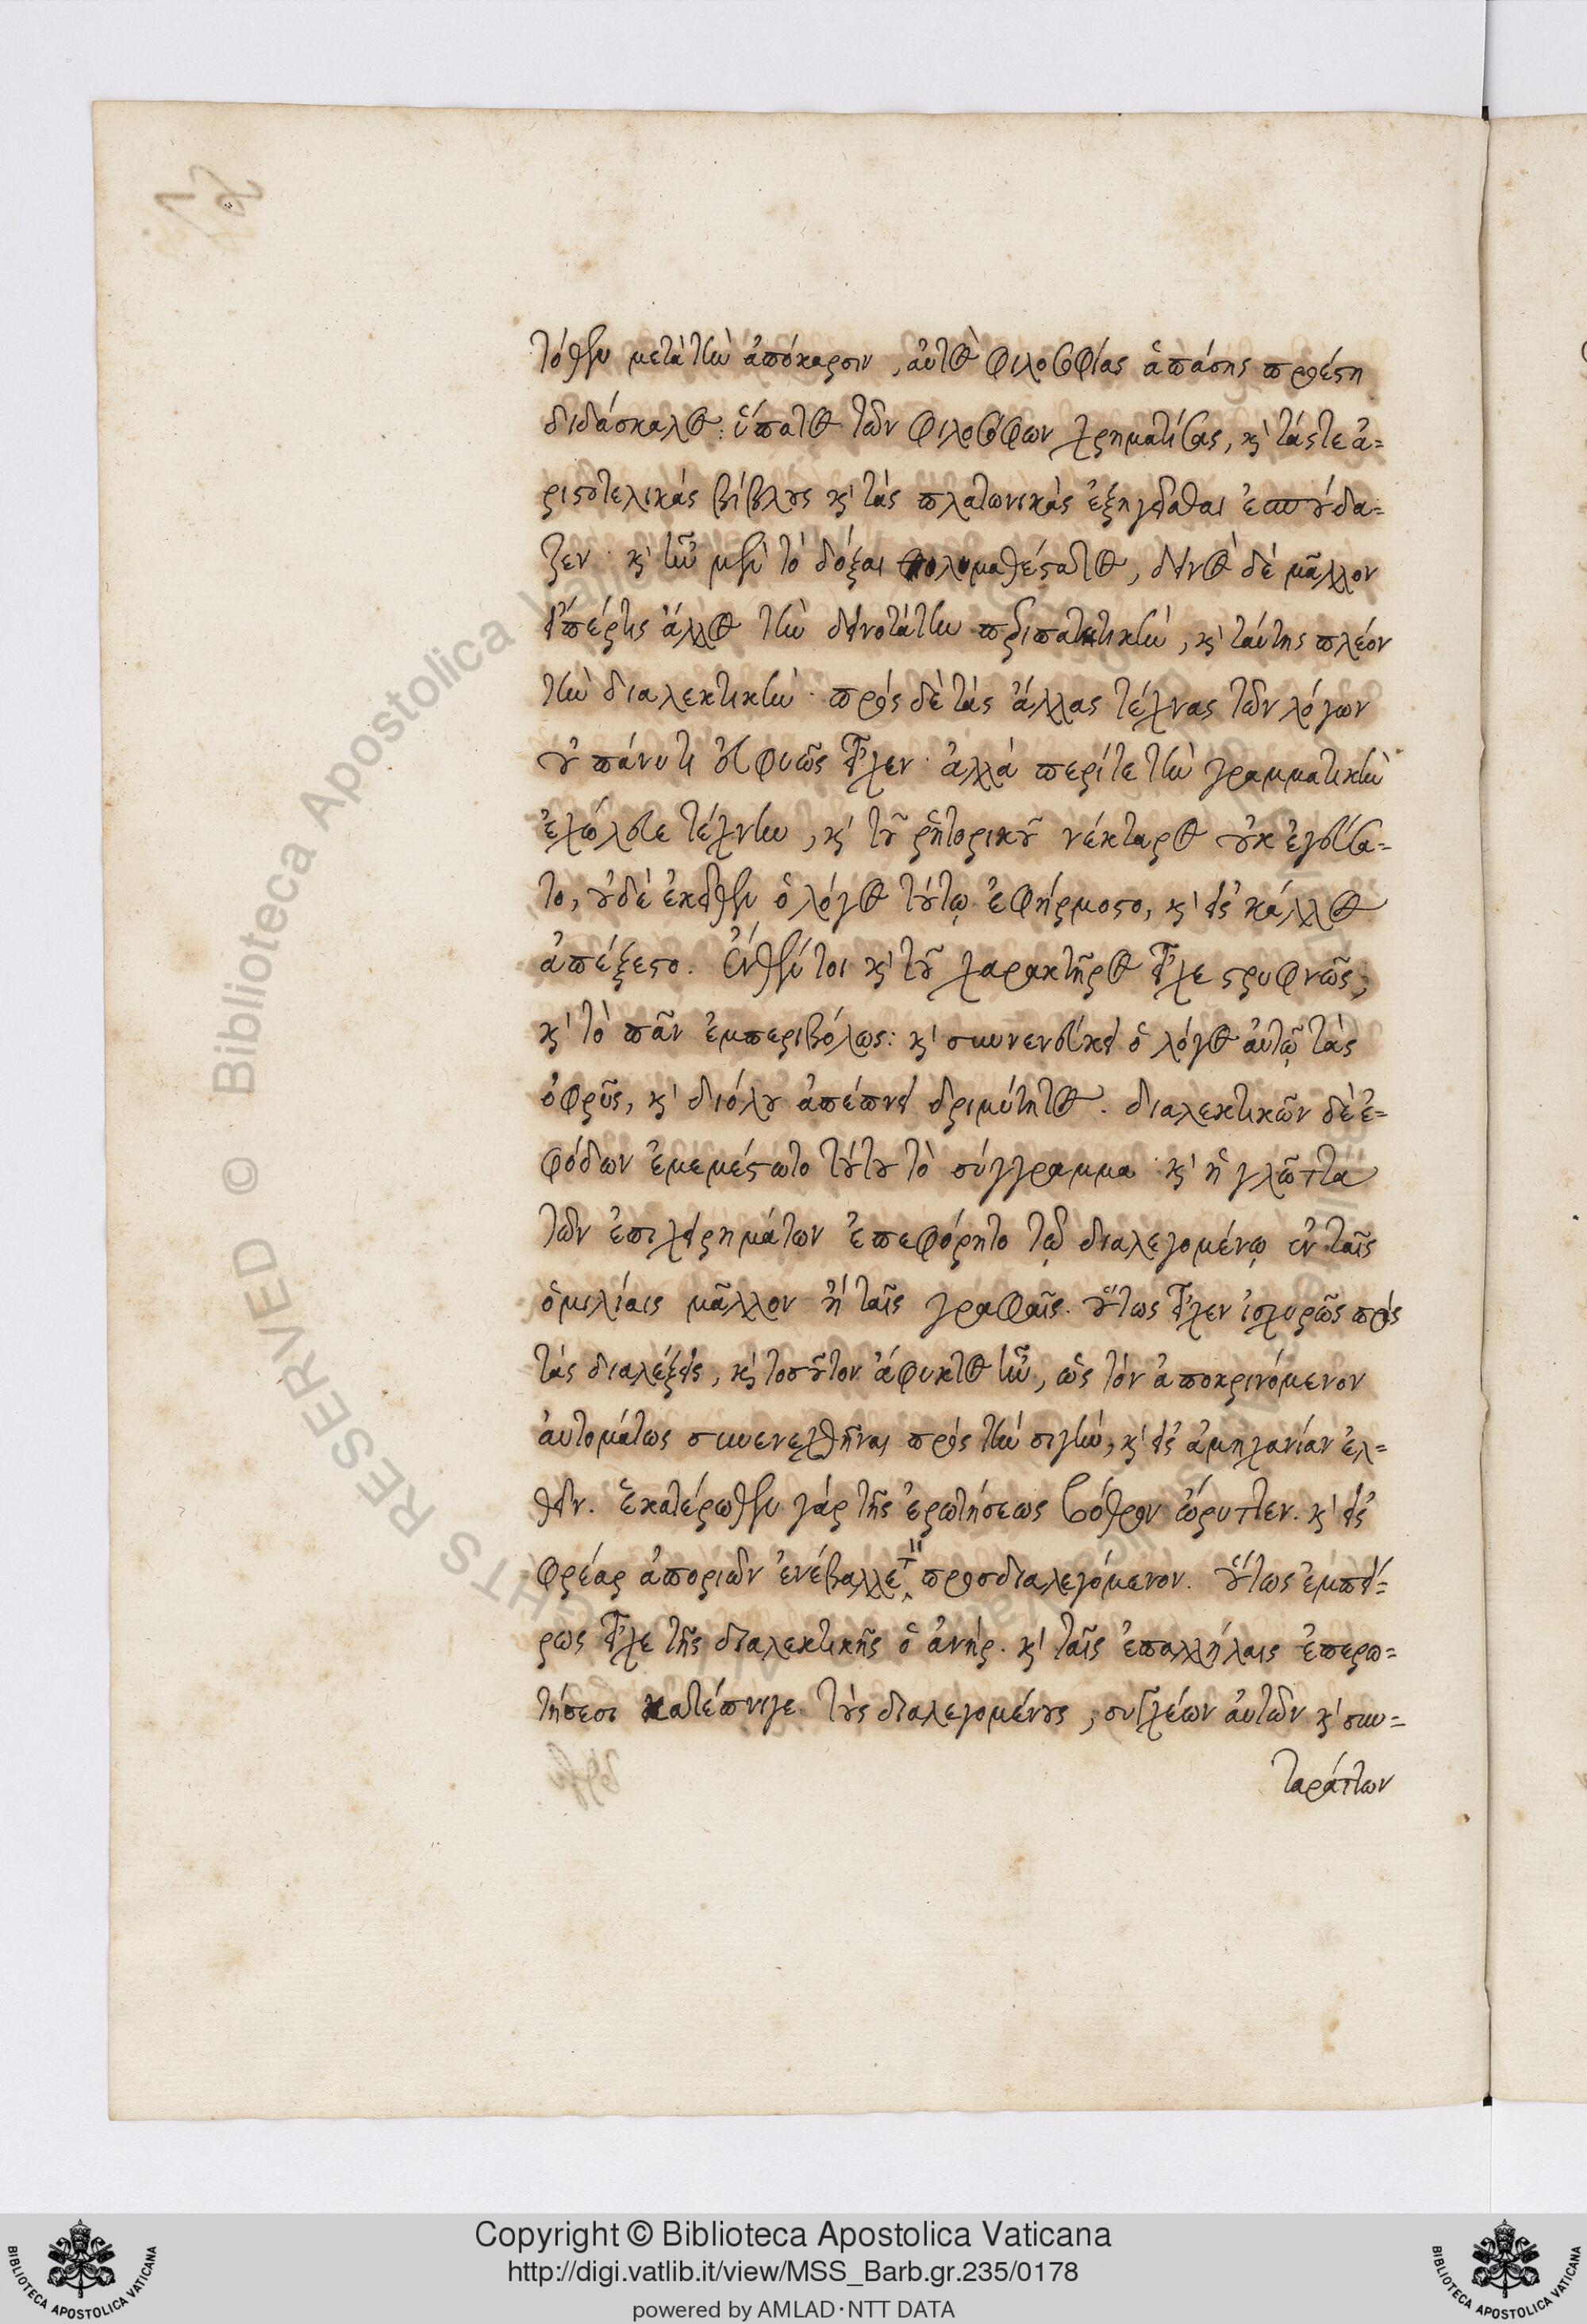 τόθεν μετὰ τὴν ἀπόκαρσιν, αὐτὸς φιλοσοφίας ἁπάσης προέστη
διδάσκαλος: ὕπατος τῶν φιλοσόφων χρηματίσας, κ᾽ τάς τε ἀ-
ριστοτελικάς βίβλους κ᾽ τάς πλατωνικάς ἐξηγεῖσθαι ἐσπούδα-
ζεν· κ᾽ ἦν μὲν τὸ δόξαι πολυμαθέστατος, δεινὸς δὲ μᾶλλον
εἴπέρ τις ἄλλος τὴν δεινοτάτην περιπατητικὴν, κ᾽ ταύτης πλέον
τὴν διαλεκτικὴν· πρός δὲ τάς ἄλλας τέχνας τῶν λόγων
οὐ πάνυ τι εὐφυῶς εἶχεν· ἀλλά περί τε τὴν γραμματικὴν
ἐχώλευε τέχνην, κ᾽ τοῦ ῥητορικοῦ νέκταρος οὐκ ἐγεύσα-
το, οὐδέ ἐκεῖθεν ὁ λόγος τούτῳ ἐφήρμοστο, κ᾽ εἰς κάλλος
ἀπέξεστο. Ἔνθέν τοι κ᾽ τοῦ χαρακτῆρος εἶχε στρυφνῶς,
κ᾽ τὸ πᾶν ἐμπεριβόλως: κ᾽ συνενεύκει ὁ λόγος αὐτῷ τάς
ὀφρῦς, κ᾽ διόλου ἀπέπνει δριμύτητος. διαλεκτικῶν δὲ ἐ-
φόδων ἐμεμέστωτο τούτου τὸ σύγγραμμα· κ᾽ ἡ γλῶττα
τῶν ἐπιχειρημάτων ἐπεφόρητο τῷ διαλεγομένῳ ἐν ταῖς
ὁμιλίαις μᾶλλον ἤ ταῖς γραφαῖς. οὕτως εἶχεν ἰσχυρῶς πρός
τάς διαλέξεις, κ᾽ τοσοῦτον ἄφυκτος ἦν, ὡς τόν ἀποκρινόμενον
αὐτομάτως συνενεχθῆναι πρός τήν σιγήν, κ᾽ εἰς ἀμηχανίαν ἐλ-
θεῖν. ἑκατέρωθεν γάρ τῆς ἐρωτήσεως βόθρον ὤρυττεν. κ᾽ εἰς
φρέαρ ἀποριῶν ἐνέβαλλε τ προσδιαλεγόμενον. οὕτως ἐμπεί-
ρως εἶχε τῆς διαλεκτικῆς ὁ ἀνήρ. κ᾽ ταῖς ἐπαλλήλαις ἐπερω-
τήσεσι κατέπνιγε τούς διαλεγομένους, συγχέων αὐτῶν κ᾽ συν-
ταράττων
Copyright © Biblioteca Apostolica Vaticana
http://digi.vatlib.it/view/MSS_Barb.gr.235/0178
powered by AMLAD·NTT DATA